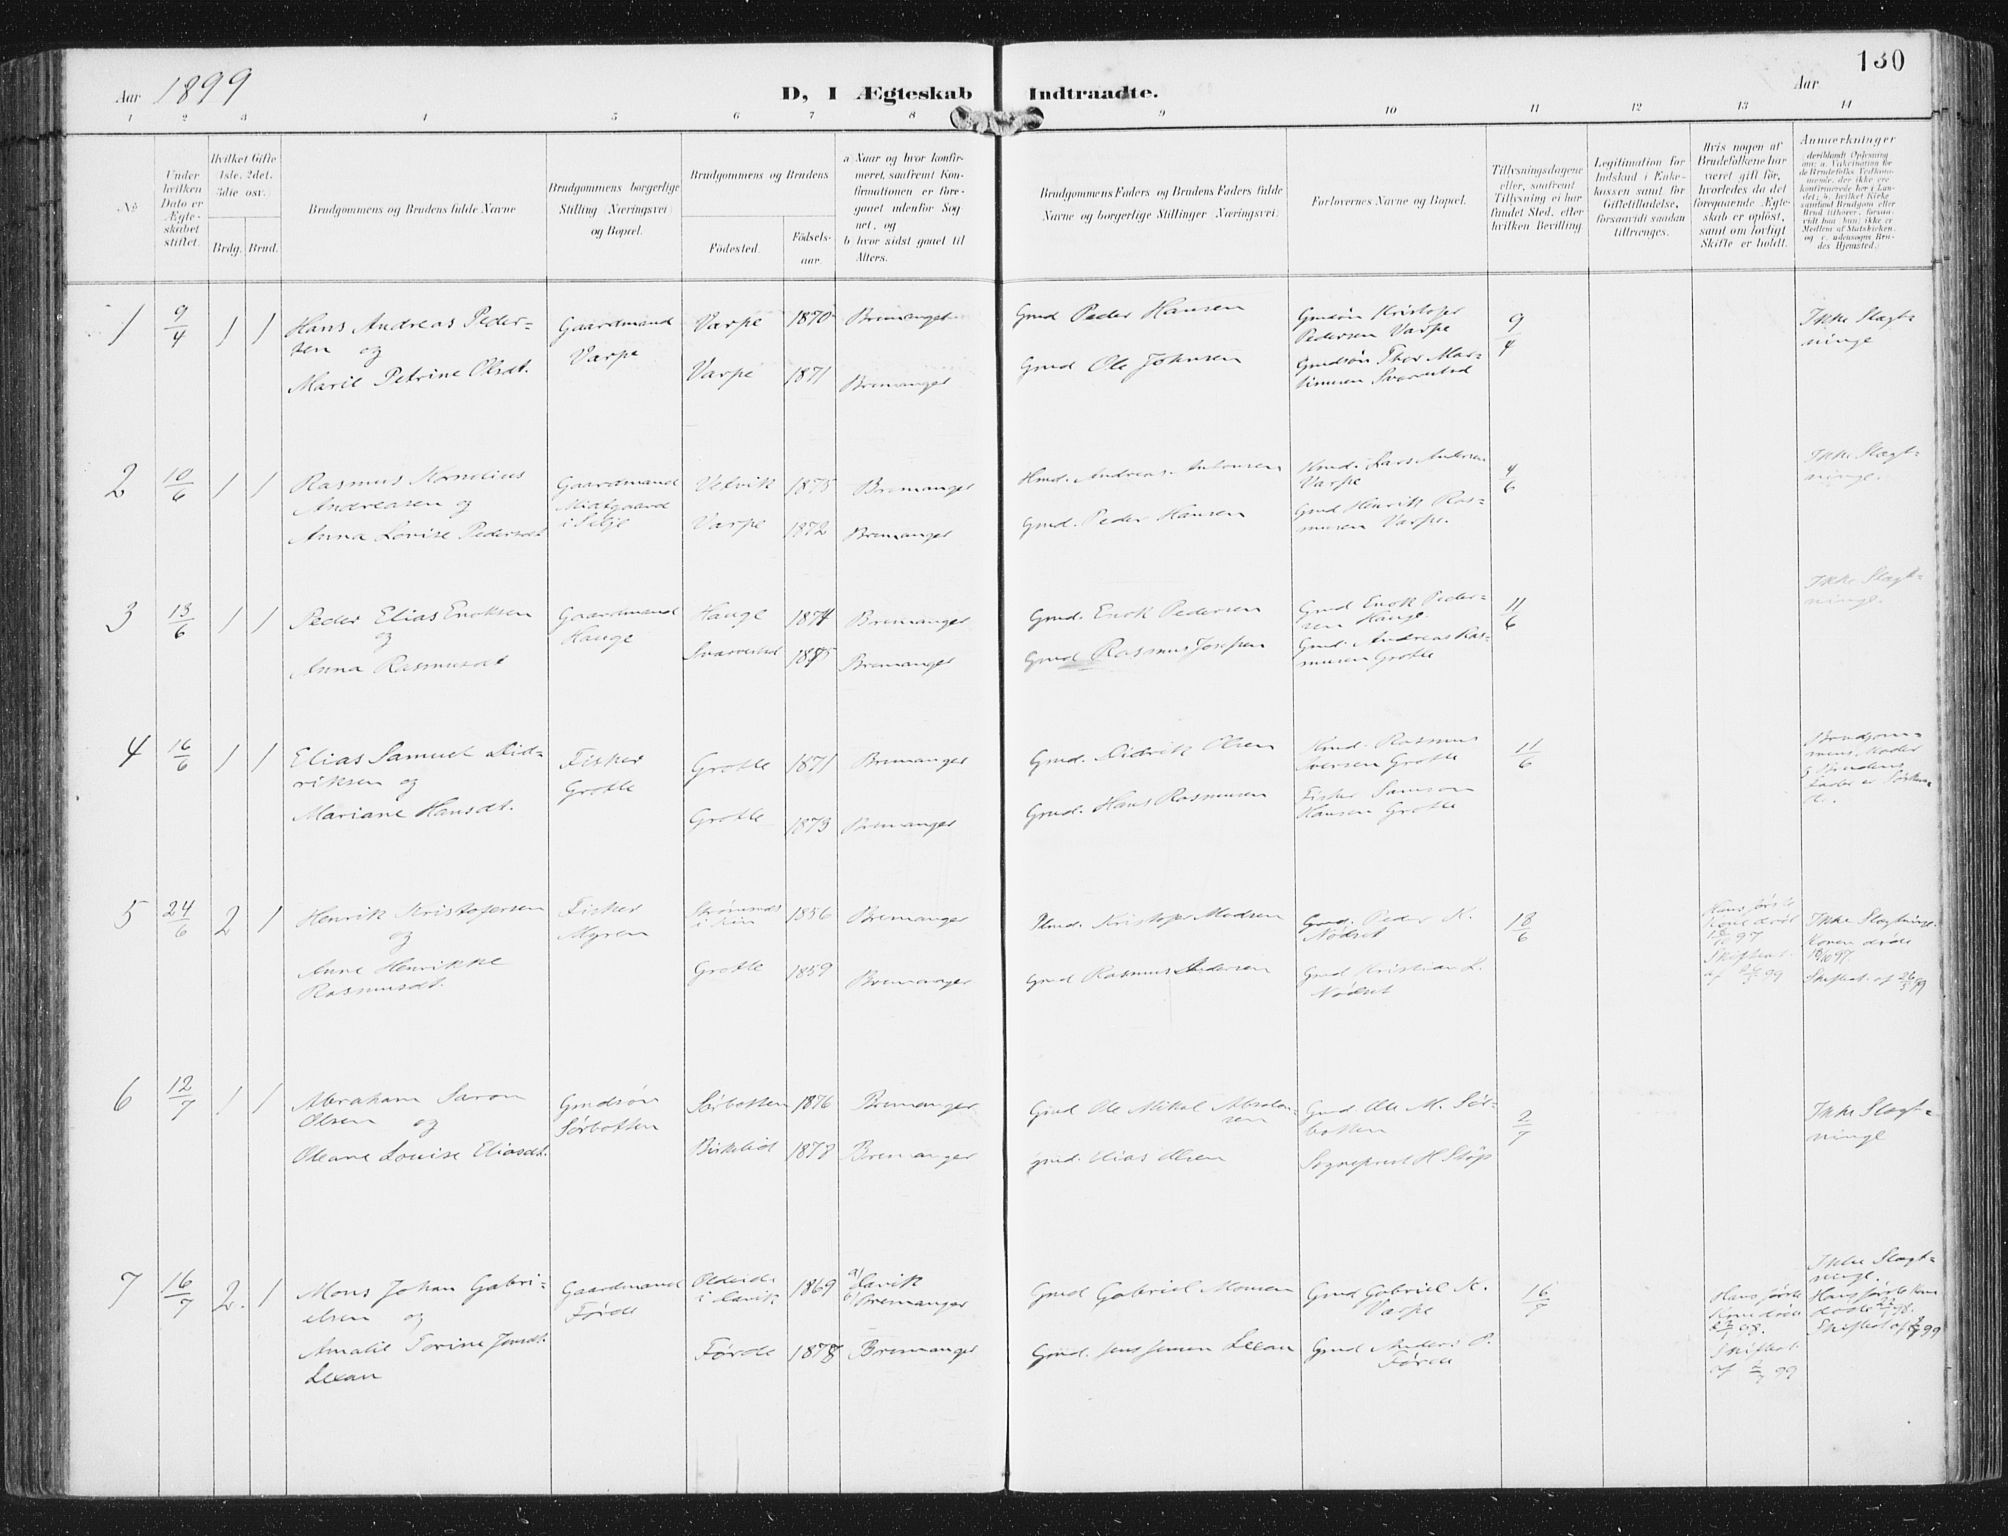 130
Aar 1899
D, I Ægteskab Indtraadte.
Aar
1 2 3 4 5 6 7 8 9 10 11 12 13 14
No
Under hvilken Dato er Ægteskabet stiftet.
Hvilket Gifte 1ste, 2det, 3die osv.
Brdg. Brud.
Brudgommens og Brudens fulde Navne
Brudgommens borgerlige Stilling (Næringsvei) og Bopæl.
Brudgommens og Brudens
Fødested.
Fødselsaar.
a Naar og hvor konfirmeret, saafremt Konfirmationen er foregaaet udenfor Sognet, og
b hvor sidst gaaet til Alters.
Brudgommens Faders og Brudens Faders fulde Navne og borgerlige Stillinger (Næringsvei)
Forlovernes Navne og Bopæl.
Tillysningsdagene eller, saafremt Tillysning ei har fundet Sted, efter hvilken Bevilling.
Legitimation for Indskud i Enkekassen samt for Giftetilladelse, forsaavidt saadan tiltrænges.
Hvis nogen af Brudefolkene har været gift før, hvorledes da det foregaaende Ægteskab er opløst, samt om lovligt Skifte er holdt.
Anmærkninger
1 9/4 1 1 Hans Andreas Pedersen og Gaardmand Varpe Varpe 1870 Bremanger Gmd Peder Hansen Gmdsøn Kristofer Pedersen Varpe 9/4 Ikke Slægtninge
Marie Petrine Olsdt. Varpe 1871 Bremanger Gmd Ole Johnsen Gmdsøn Thor Martinusen Svarrestad
2 10/6 1 1 Rasmus Kornelius Andreasen og Gaardmand Midtgaard i Selje Vetvik 1875 Bremanger Hmd. Andreas Antonsen Kmd. Lars Andersen Varpe 4/6 Ikke Slægtninge.
Anna Lovise Pedersdt Varpe 1872 Bremanger Gmd. Peder Hansen Gmd Henrik Rasmusen Varpe.
3 13/6 1 1 Peder Elias Enoksen og Gaardmand Hauge Hauge 1874 Bremanger Gmd. Enok Pedersen Gmd Enok Pedersen Hauge 11/6 Ikke Slægtninge.
Anna Rasmusdt Svarrestad 1875 Bremanger Gmd Rasmus Josefsen Gmd. Andreas Rasmusen Grotle
4 16/6 1 1 Elias Samuel Didriksen og Fisker Grotle Grotle 1871 Bremanger Gmd. Didrik Olsen Kmd. Rasmus Iversen Grotle 11/6 Brudgommens Moder & Brudens Fader er Sødskende.
Mariane Hansdt. Grotle 1873 Bremanger Gmd. Hans Rasmusen Fisker Samson Hansen Grotle
5 24/6 2 1 Henrik Kristofersen og Fisker Myren 1856 Bremanger Kristofer Madsen Gmd. Peder K. Nødset 18/6 Hans første Kone død 18/10 97 Skifteat. af 26/5 99 Ikke Slægtninge. Konen døde 18/10 97. Skifteat. af 26/5 99
Anne Henrikke Rasmusdt. Grotle 1859 Bremanger Gmd Rasmus Andersen Gmd Kristian L. Nødset
6 12/7 1 1 Abraham Saron Olsen og Gmdsøn Sørbotten Sørbotten 1876 Bremanger Gmd Ole Mikal Absalonsen Gmd Ole M. Sørbotten 2/7 Ikke Slægtninge
Oleane Louise Eliasdt. Birkelid 1878 Bremanger Gmd. Elias Olsen Sogneprest H Støp
7 16/7 2. 1 Mons Johan Gabrielsen og Gaardmand Førde i Davik 1869 a) Davik b) Bremanger Gmd Gabriel Monsen Gmd Gabriel K. Varpe 16/7 Hans første Kone døde Skifteat. af 99 Ikke Slægtninge. Hans første Kone døde Skifteat af 99
Amalie Torine Jensdt. Lexau Førde 1878 Bremanger Gmd. Jens Jensen Lexau Gmd Anders P. Førde